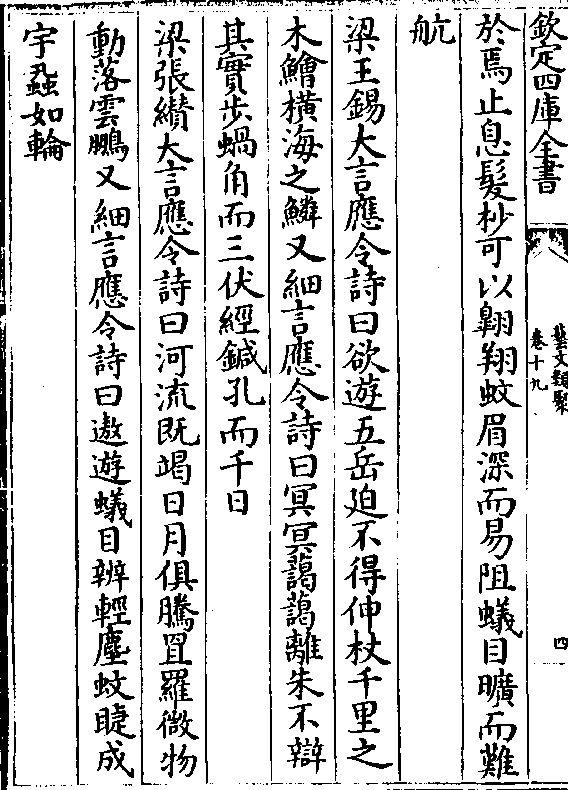 欽定四庫全書
藝文類聚
卷十九
四
於焉止息髮杪可以翺翔蚊眉深而易阻蟻目曠而難
航
梁王錫大言應令詩曰欲遊五岳迫不得伸杖千里之
木鱠橫海之鱗又細言應令詩曰冥冥藹藹離朱不辯
其實步蝸角而三伏經鍼孔而千日
梁張纘大言應令詩曰河流既竭日月俱騰罝羅微物
動落雲鵬又細言應令詩曰遨遊蟻目辨輕塵蚊睫成
宇蝨如輪